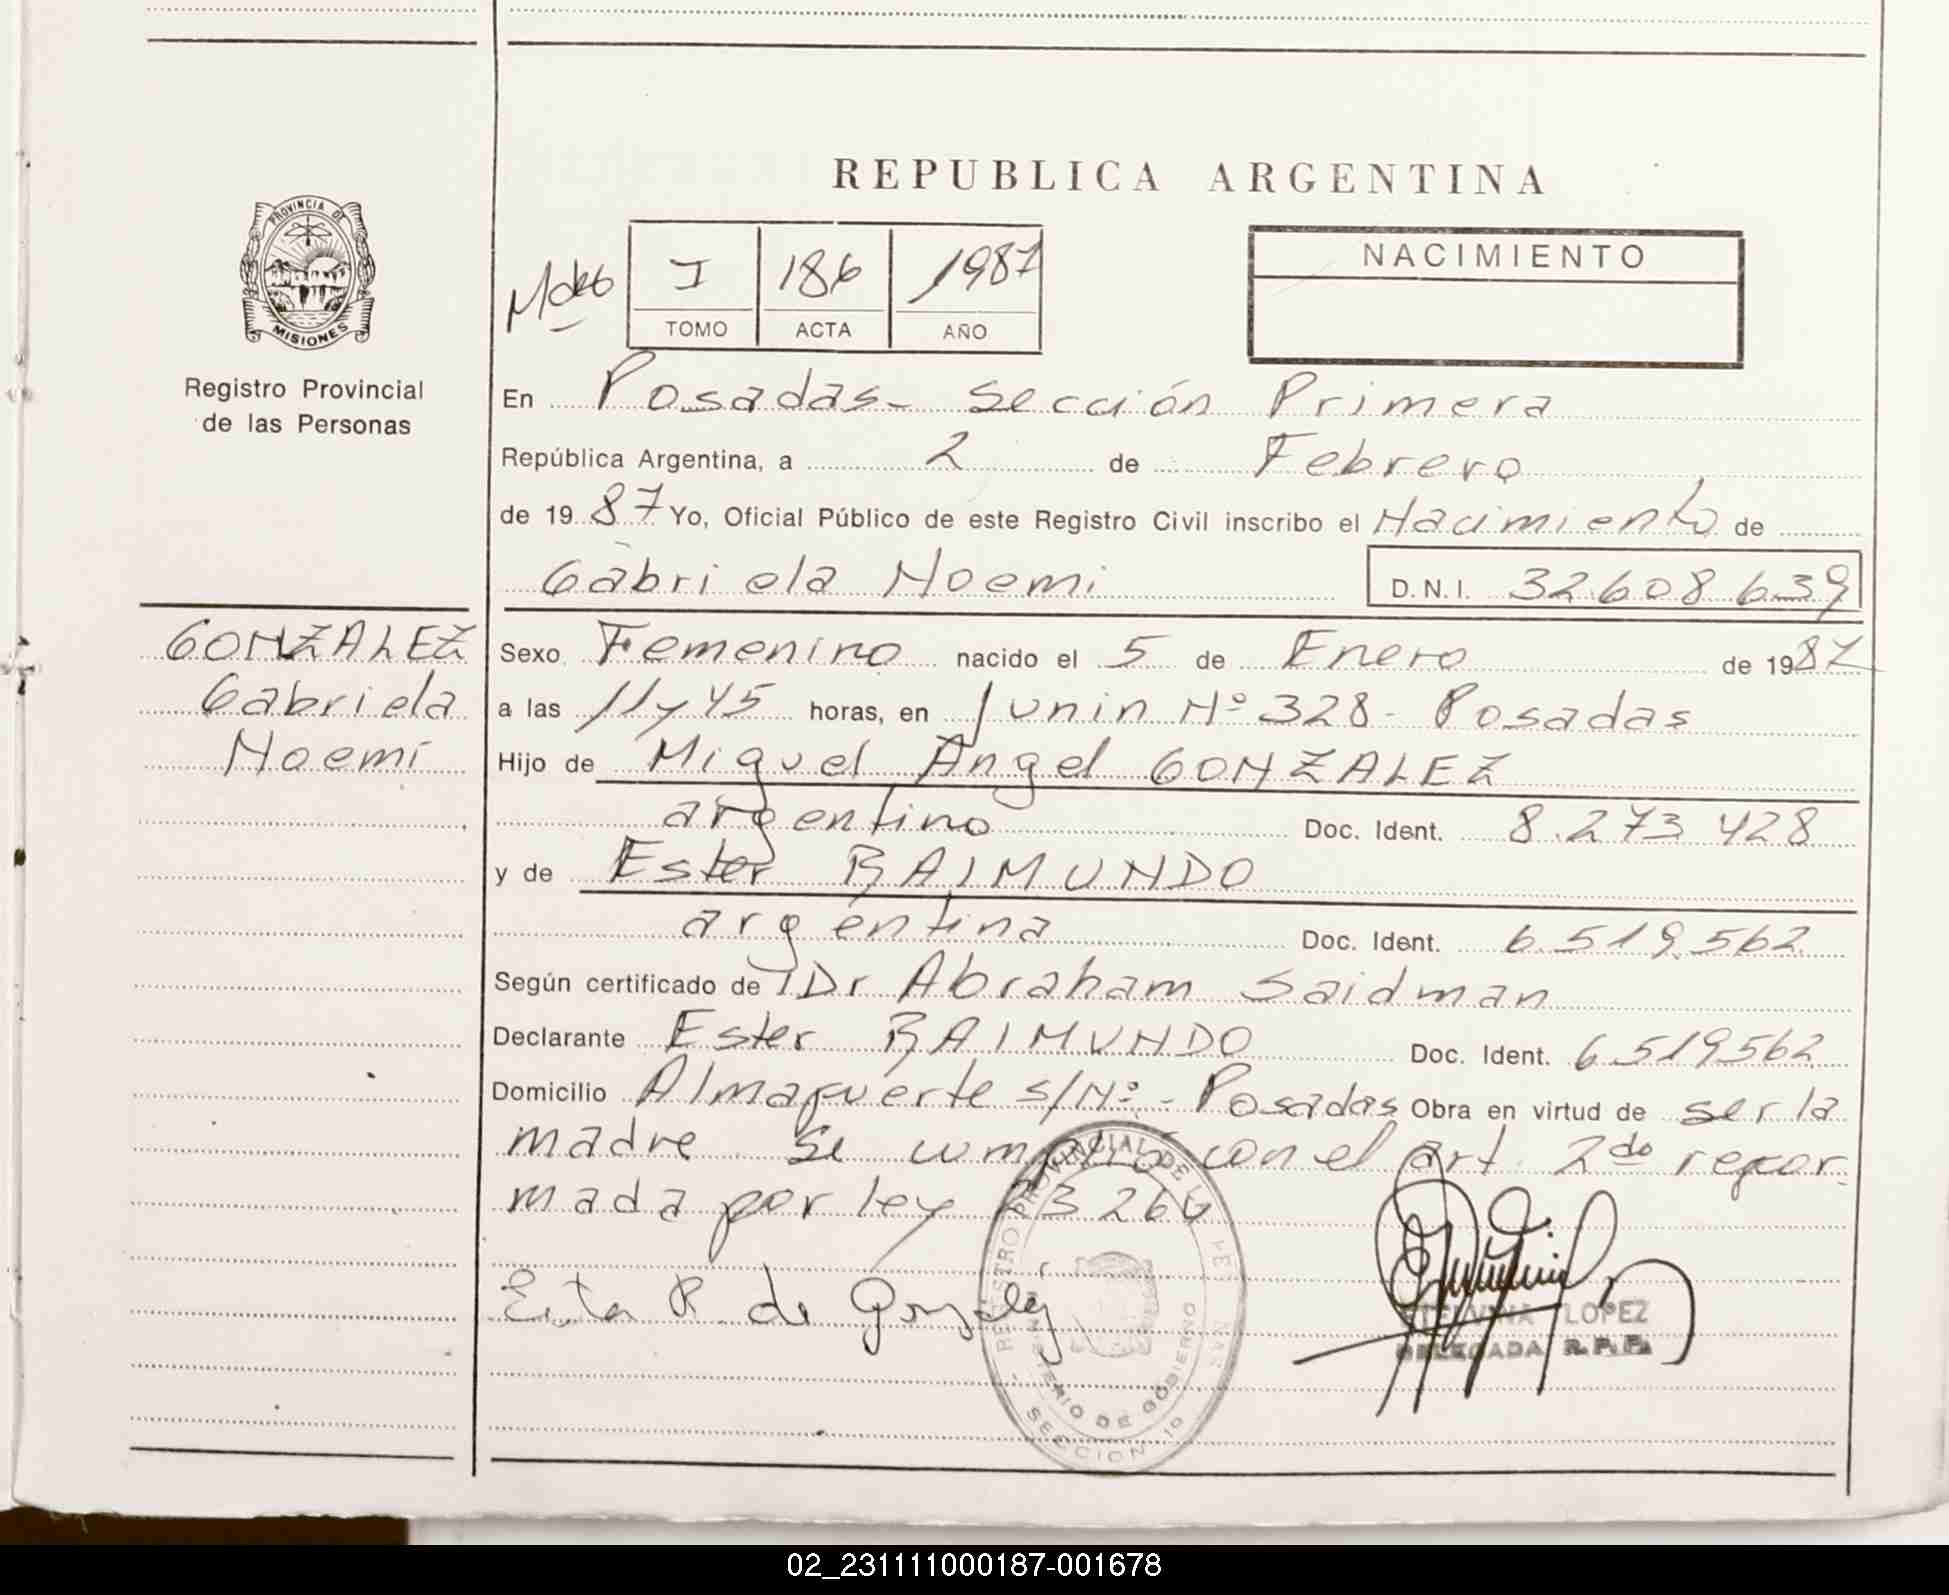 REPUBLICA ARGENTINA
PROVINCIA DE
MISIONES
Registro Provincial
de las Personas
I 186 1987
TOMO ACTA AÑO
NACIMIENTO
En Posadas - Sección Primera
República Argentina, a 2 de Febrero
de 1987 Yo, Oficial Público de este Registro Civil inscribo el Nacimiento de
Gabriela Noemi D.N.I. 32.608.639
GONZALEZ
Gabriela
Noemí
Sexo Femenino nacido el 5 de Enero de 1987
a las 11 y 45 horas, en Junin Nº 328 - Posadas
Hijo de Miguel Angel GONZALEZ
argentino Doc. Ident. 8.273.428
y de Ester RAIMUNDO
argentina Doc. Ident. 6.519.562
Según certificado de Dr Abraham Saidman
Declarante Ester RAIMUNDO Doc. Ident. 6.519.562
Domicilio Almafuerte s/Nº - Posadas Obra en virtud de ser la
madre Se cumplió con el art. 2do refor
mada por ley 23.264
Ester R de Gonzalez
REGISTRO PROVINCIAL DE
MINISTERIO DE GOBIERNO
SECCION 1º
LOPEZ
DELEGADA R.P.P.
02_231111000187-001678